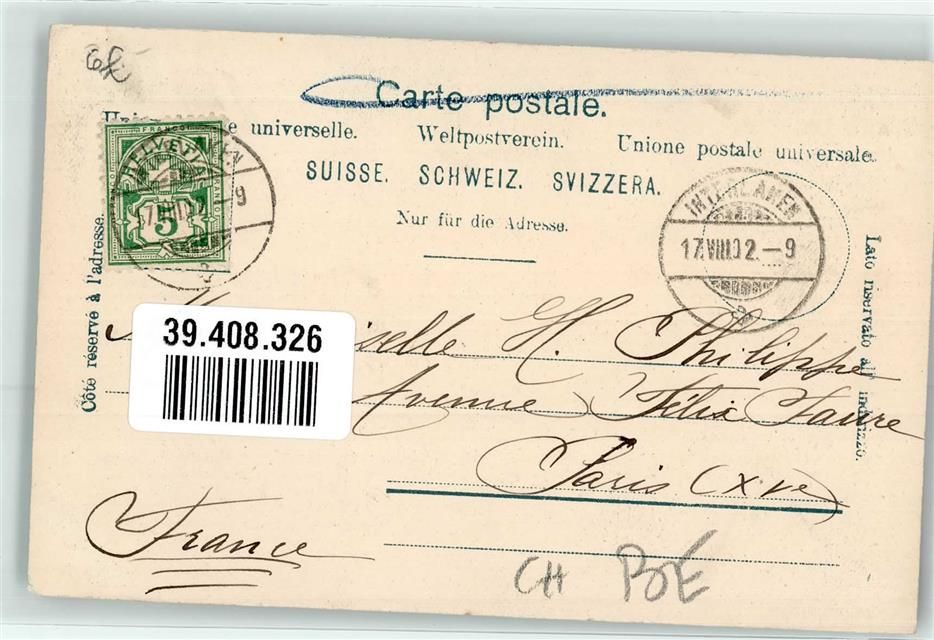 Carte postale.
e universelle. Weltpostverein. Unione postale universale.
SUISSE. SCHWEIZ. SVIZZERA.
Nur für die Adresse.
Côté réservé à l'adresse.
Lato riservato all' indirizzo.
FRANCO
HELVETIA
5
INTERLAKEN
17.VIII.02.-9
39.408.326
selle H. Philippe
Avenue Félix Faure
Paris (XVe)
France
CH BE